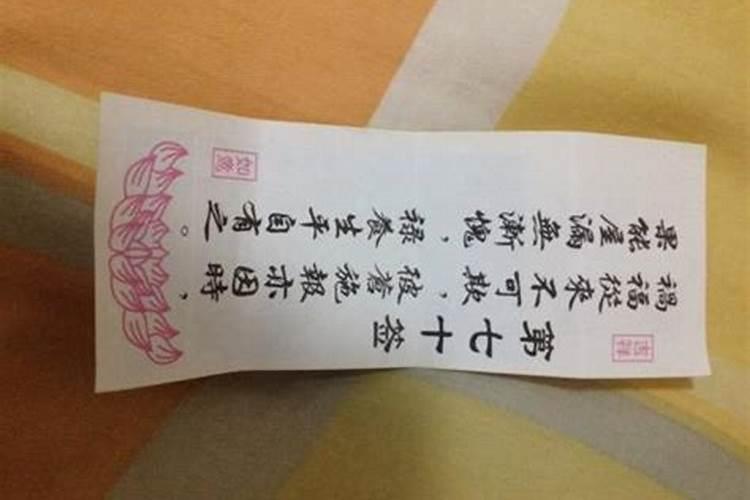 吉祥
第七十签
禍福從來不可欺，彼蒼施報亦因時，
果能屋漏無漸愧，祿養生平自有之。
如意